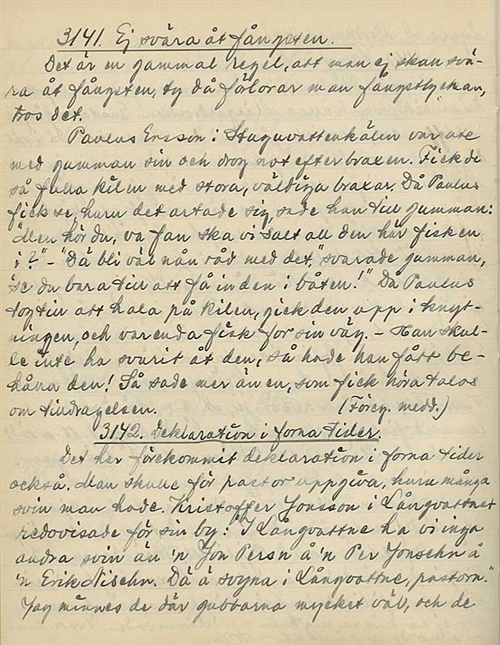 3141. Ej svära åt fångsten.
Det är en gammal regel, att man ej skan svä-
ra åt fångsten, ty då förlorar man fångstlyckan,
tros det.
Paulus Ersson i Stuguvattenkälen var ute
med gumman sin och drog not efter braxen. Fick de
så fulla kilen med stora, väldiga braxar. Då Paulus
fick se, huru det artade sig, sade han till gumman:
"Men hör du, va fan ska vi salt all den här fisken
i?" - "Dä bli väl nån råd med det", svarade gumman,
"se du bara till att få in den i båten!" Då Paulus
tog till att hala på kilen, gick den upp i knyt-
ningen, och varenda fisk for sin väg. - Han skul-
le inte ha svurit åt den, så hade han fått be-
hålla den! Så sade mer än en, som fick höra talas
om tilldragelsen. (Föreg. medd.)
3142. Deklaration i forna tider.
Det har förekommit deklaration i forna tider
också. Man skulle för pastor uppgiva, huru många
svin man hade. Kristoffer Jonsson i Långvattnet
redovisade för sin by: "I Långvattne ha vi inga
andra svin än 'n Jon Persn å 'n Per Jonsehn å
'n Erik Nisehn. Dä ä svyna i Långvattne, pastorn."
Jag minnes de där gubbarna mycket väl, och de